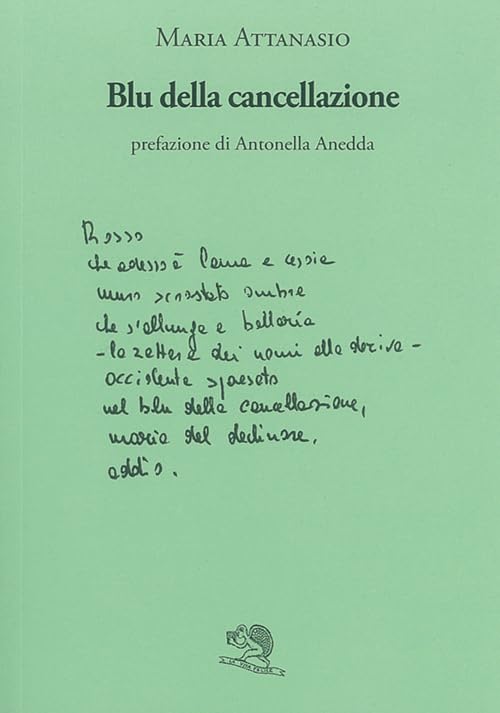 MARIA ATTANASIO
Blu della cancellazione
prefazione di Antonella Anedda
Rosso
che adesso è lama e cesoia
muro scrostato ombra
che s'allunga e ballaría
- la zattera dei nomi alla deriva -
occidente spaesato
nel blu della cancellazione,
maria del declinare,
addio.
LA VITA FELICE